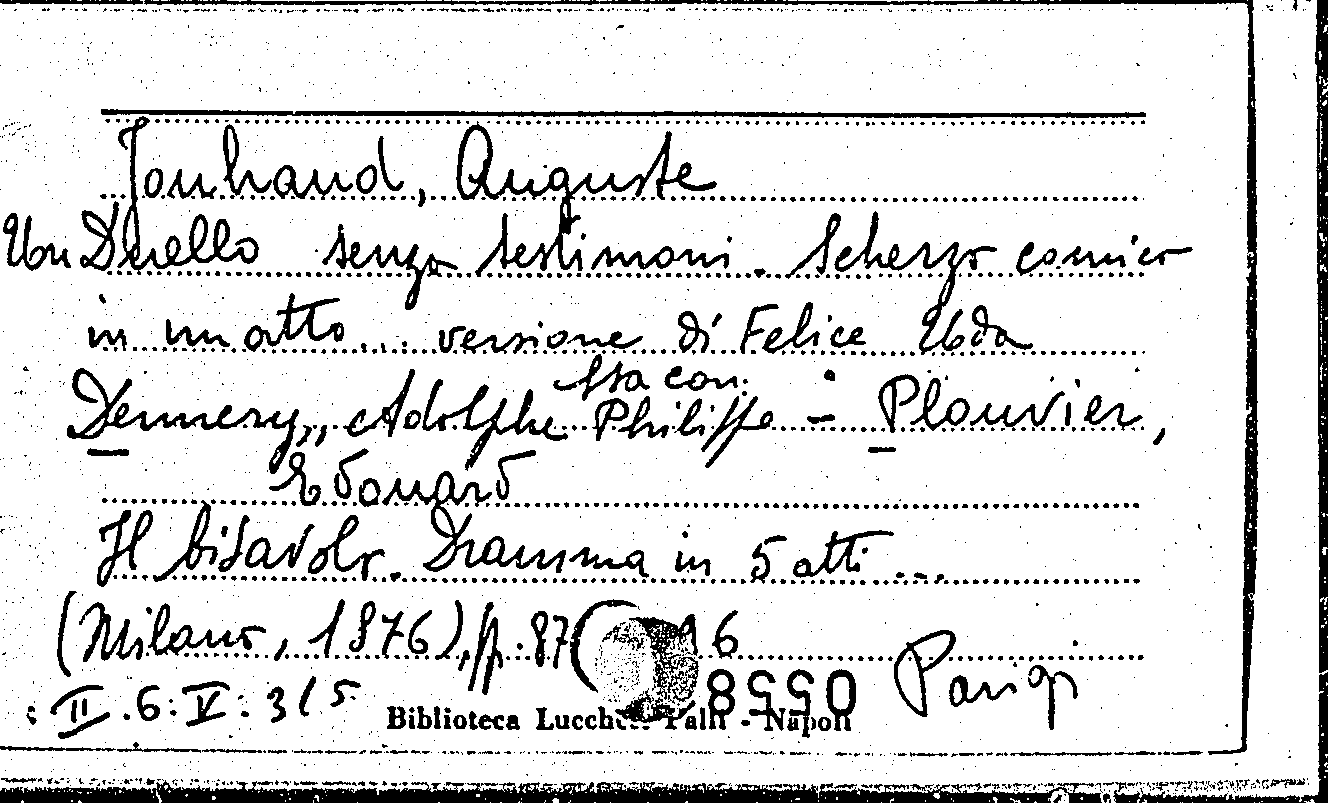 Jouhaud, Auguste
Un Duello senza testimoni. Scherzo comico
in un atto... versione di Felice Uda
Sta con:
Dennery, Adolphe Philippe - Plouvier,
Edouard
Il bisavolo. Dramma in 5 atti...
(Milano, 1876), pp. 87 96
Parigi
: II.6.V.3/5
05508
Biblioteca Lucchesi Palli - Napoli